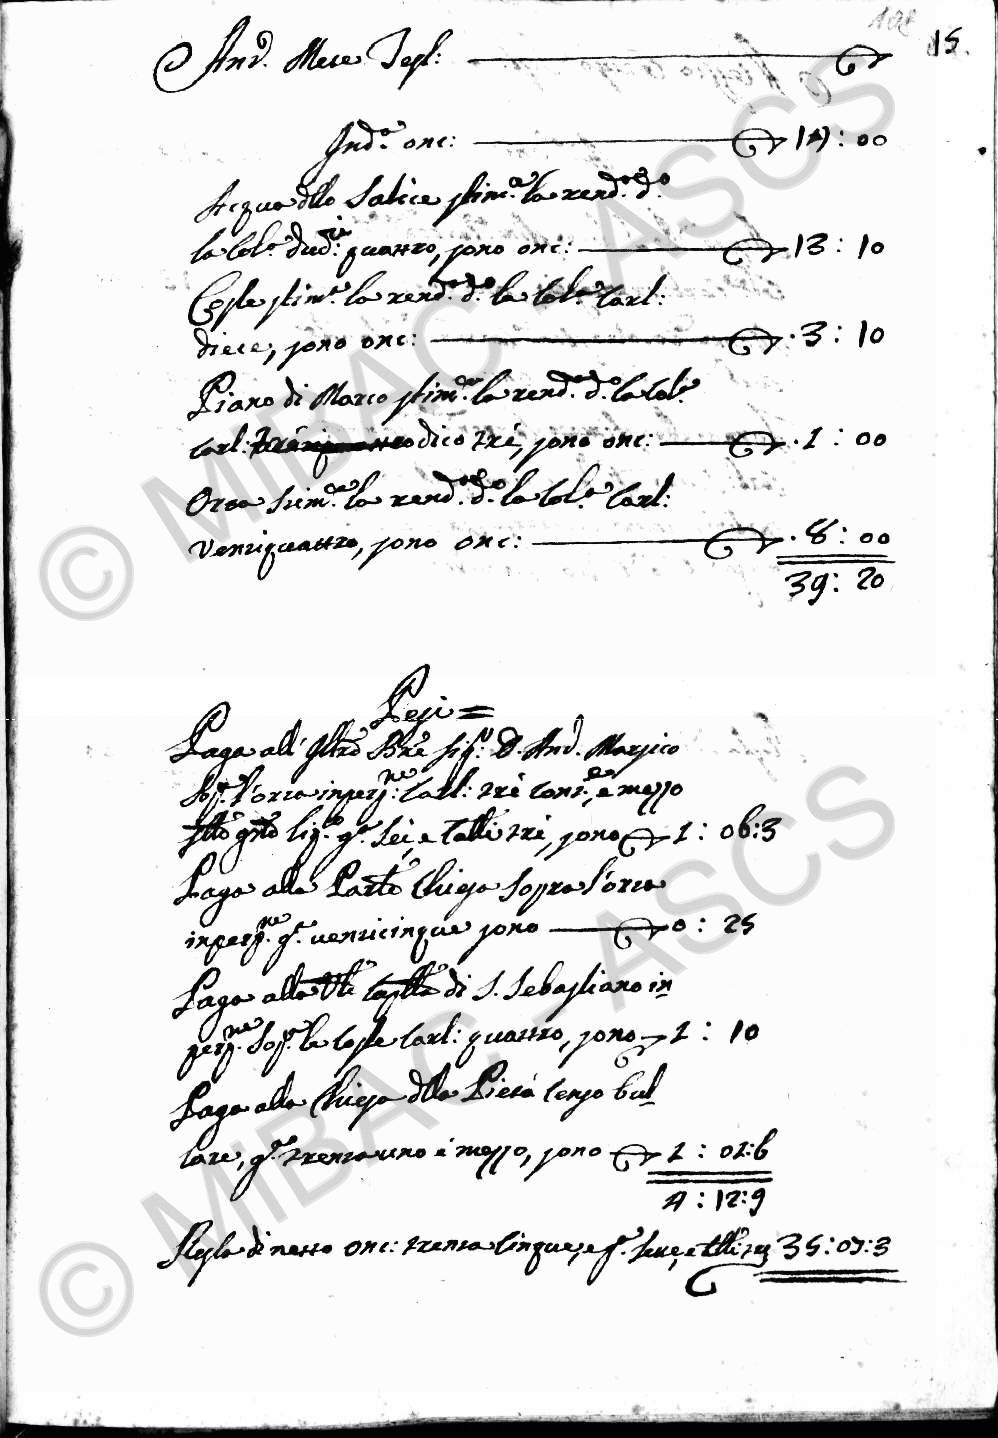 15
And.ª Mese Tegl:
Ind.ª onc: 14: 00
Acqua dllo Salice stim.ª la rend.ª d.º
la Col.ª dud.ri quattro, sono onc: 13: 10
Coste stim.ª la rend.ª d.º la Col.ª Carl:
diece, sono onc: .3: 10
Piano di Marco stim.ª la rend.ª d.º la Col.ª
Carl: dico trè, sono onc: .1: 00
Orta stim.ª la rend.ª d.º la Col.ª Carl:
ventiquattro, sono onc: .8: 00
39: 20
Pesi =
Paga all' Illtrē Brē Sig.r D. And.ª Marsico
Sop.ª l'orta in perp.ne: Carl: trè cont: e mezzo
g.ª Sei, e Calli trè, sono 1: 06:3
Paga alla Parlē Chiesa Sopra l'orta
in perp.ne g.ª venticinque sono 0: 25
Paga alla Vlē Capllā di S. Sebastiano in
perp.ne Sop.ª le Coste Carl: quattro, sono 1: 10
Paga alla Chiesa dlla Pietà Censo bul
lare, g.ª trenta uno è mezzo, sono 1: 01:6
4: 12:9
Resta di netto onc: trenta cinque, e g.ª sette, e Clli: trè 35: 07:3
© MIBAC - ASCS
© MIBAC - ASCS